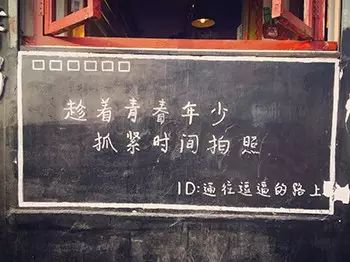 趁着青春年少
抓紧时间拍照
ID:通往逗逼的路上